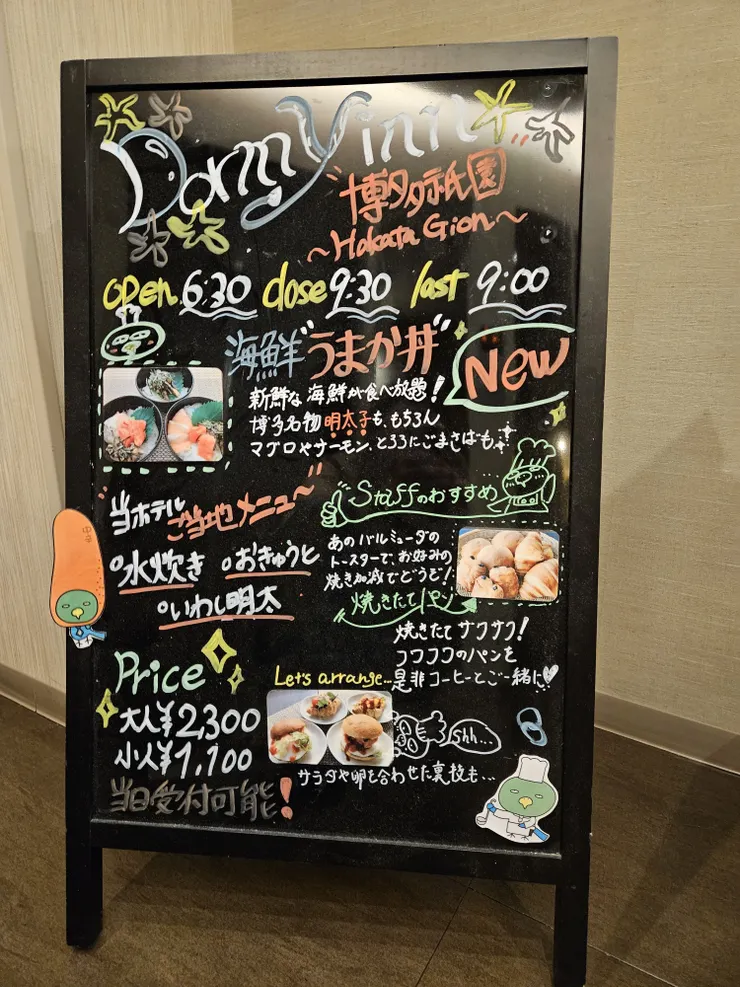 Dormy inn
博多祇園
~Hakata Gion~
open 6:30 close 9:30 last 9:00
海鮮"うまか丼"
New
新鮮な海鮮が食べ放題!
博多名物明太子も、もちろん
マグロやサーモン、ところにごまさばも
当ホテル
ご当地メニュー
水炊き
おきゅうと
いわし明太
Staffのおすすめ
あのバルミューダの
トースターで、お好みの
焼き加減でどうぞ!
焼きたてパン
焼きたてサクサク!
コワコワのパンを
是非コーヒーとご一緒に
Price
大人¥2,300
小人¥1,100
当日受付可能!
Let's arrange...
shh...
サラダや卵を合わせた裏技も...